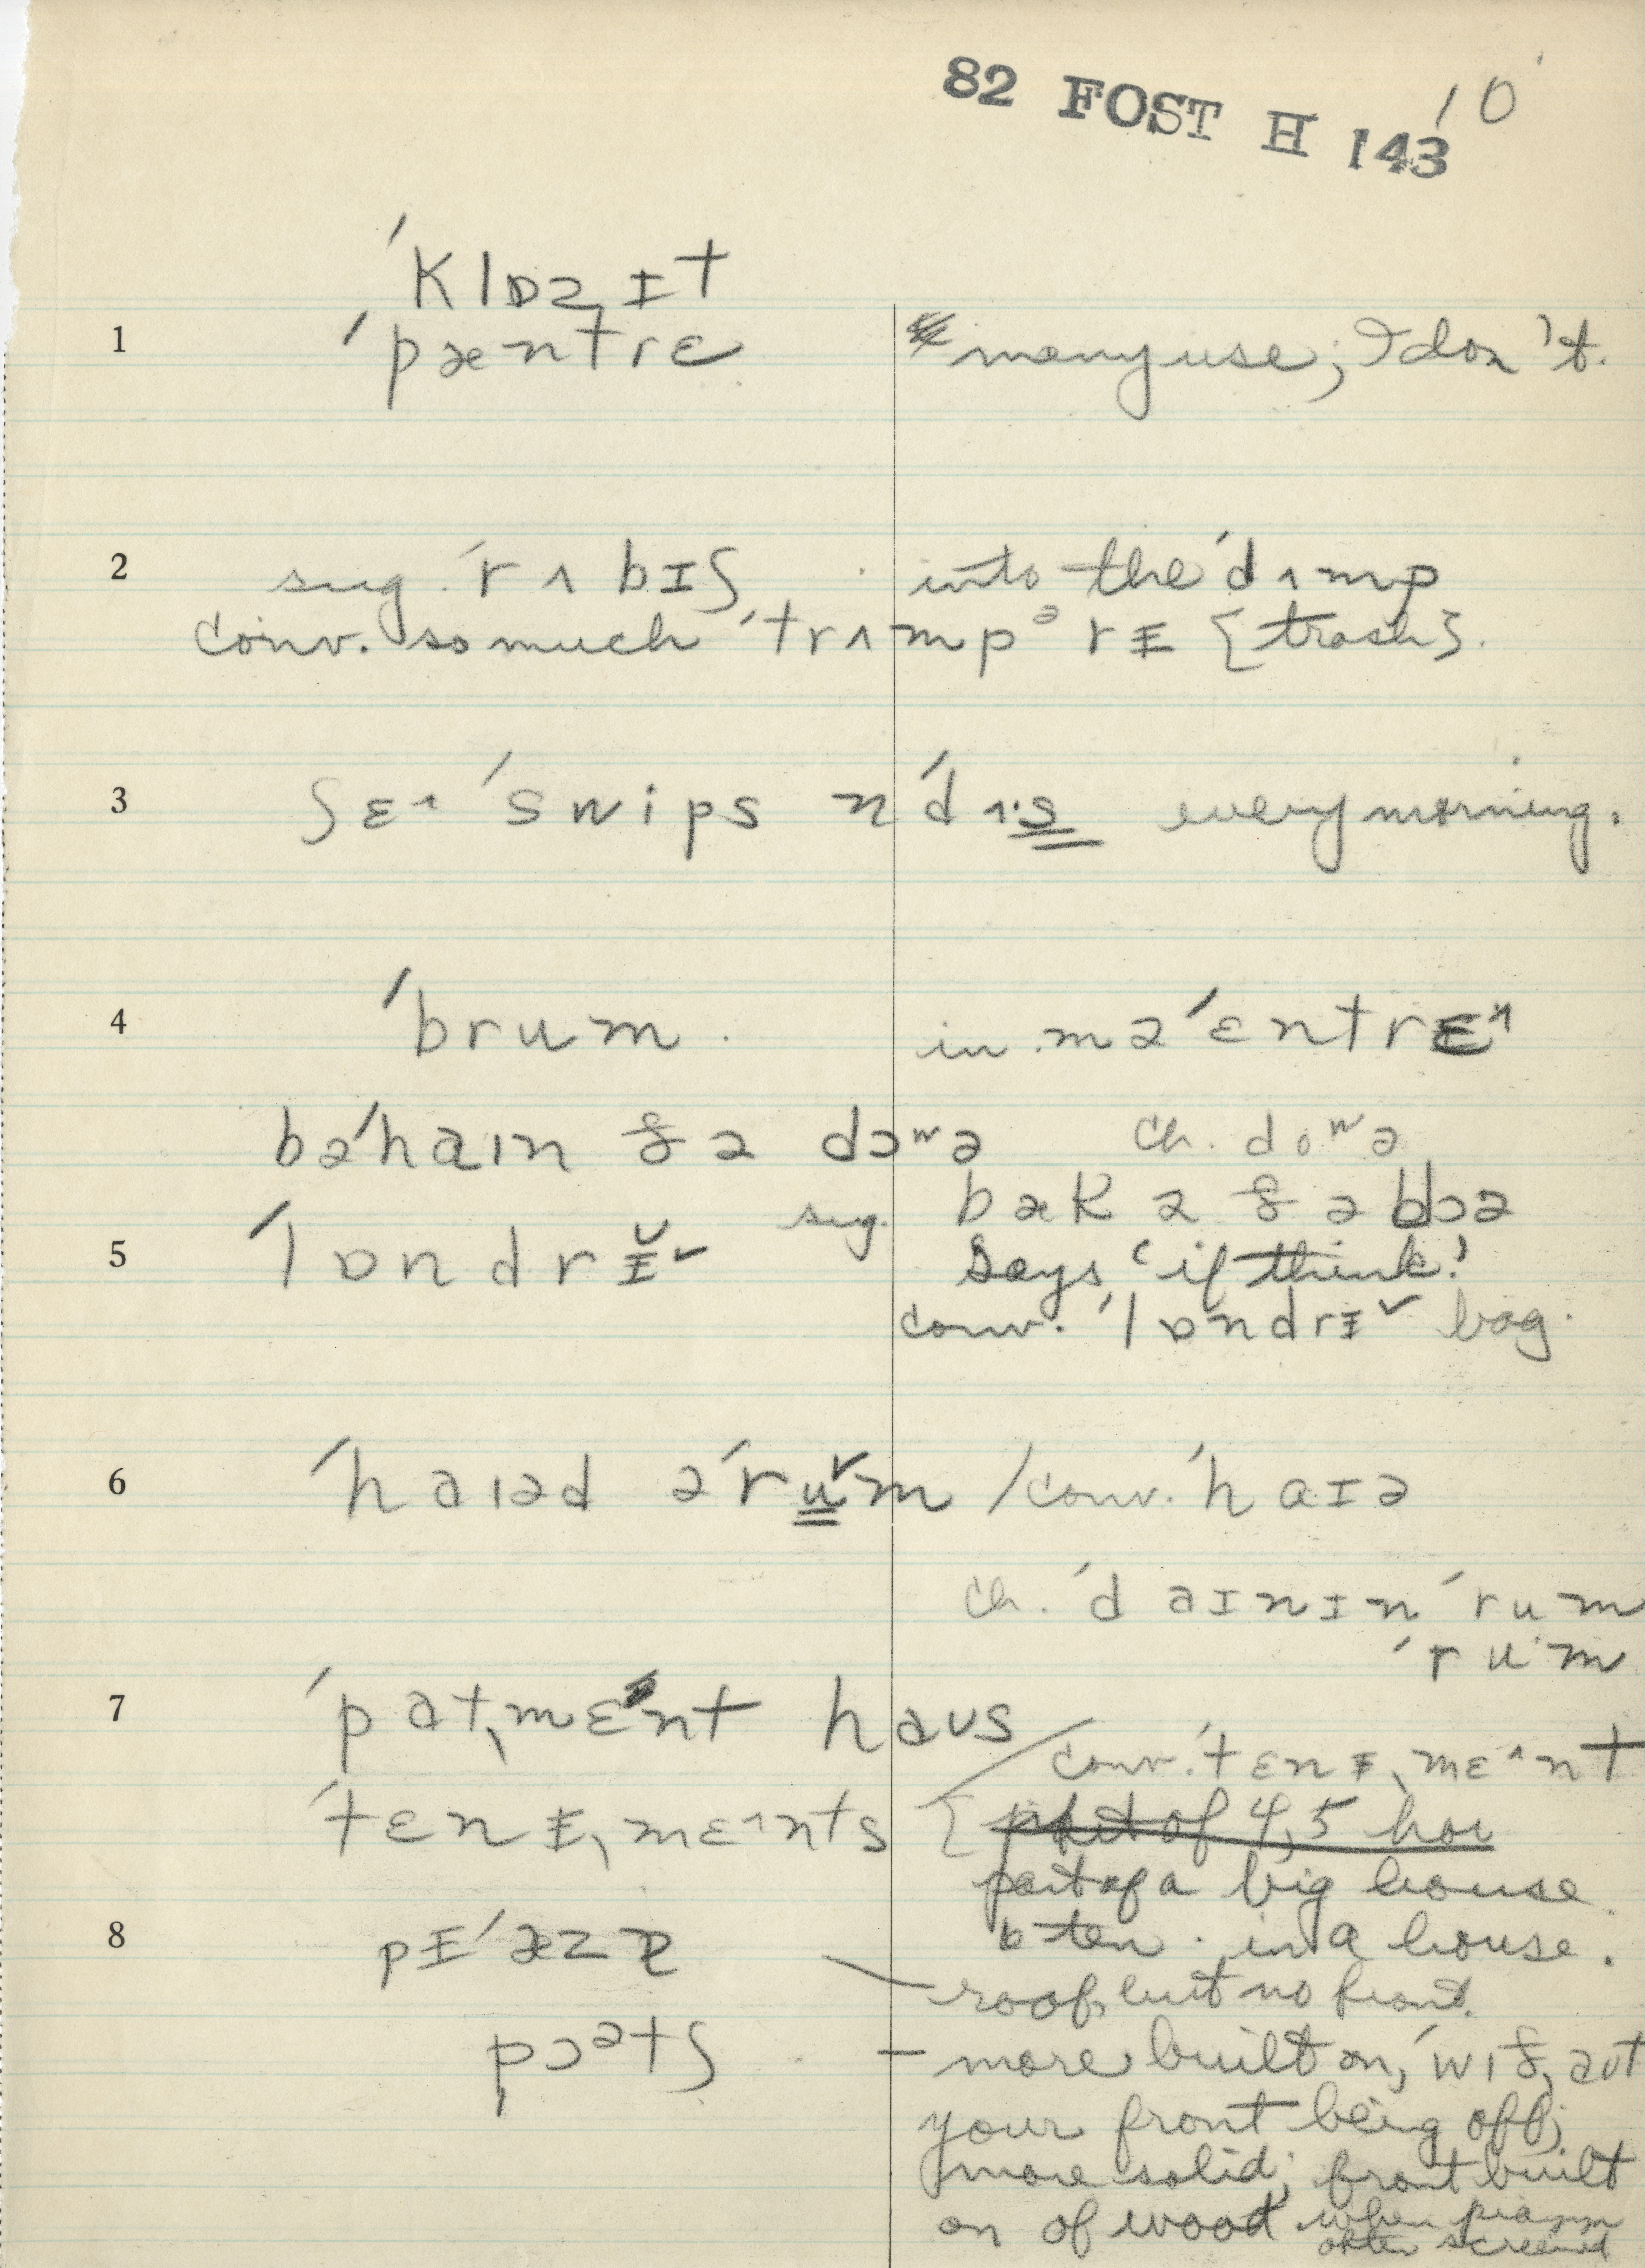 82 FOST H 143 10
ˈklɒzˌɪt
1 ˈpæntrɛ many use; I don't.
2 sug. ˈrʌbɪʃ into the ˈdʌmp
conv. so much ˈtrʌmpᵊrᵻ {trash}.
3 ʃɛ^ ˈswips n ˈdʌ·s every morning.
4 ˈbrum. in mə ˈɛntrɛ^
bəˈhaın ðə dɔʷə ch. doʷə
sug. bæk ə ðə dɔə
5 ˈlɒndrᵻ̆ˇ Says 'if think!'
conv. ˈlɒndrᵻˇ bag.
6 ˈhaıəd əˈruˇm / conv. ˈhaɪə
ch. ˈdaɪnɪn ˈrum
ˈru·m
7 ˈpatˌmɛnt haʊs
conv. ˈtɛnᵻˌmɛ^nt
ˈtɛnᵻˌmɛ^nts { part of 4, 5 hou
part of a big house.
8 pᵻˈæzɐ b ten. in a house.
— roof, but no front.
pɔᵊtʃ — more built on, ˈwıðˌaʊt
your front being off;
more solid; front built
on of wood when piazza
often screened